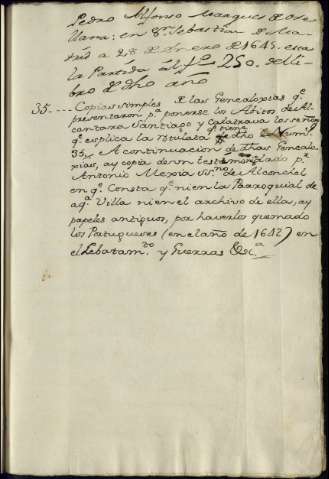 Pedro Alfonso Marques de Ore
llana; en Sn Sebastian de Ma
drid a 28 de Enero de 1645. esta
la Partida al fo 250. del li
bro de dho año
35.---- Copias simples de las Genealogias qe
presentaron pa ponerse los Abitos de Al
cantara Santiago y Calatrava los señores
qe esplica la rotulata qe tiene de dho Numo
35. A continuacion de dhas Genealo
gias, ay copia de un testimonio dado pr
Antonio Mexia SSno de Alconchel
en qe Consta qe ni en la Parroquial de
aqa Villa ni en el archivo de ella, ay
papeles antiguos, por haverlos quemado
los Portugueses (en el año de 1642) en
el Lebatamto y Guerras &ca